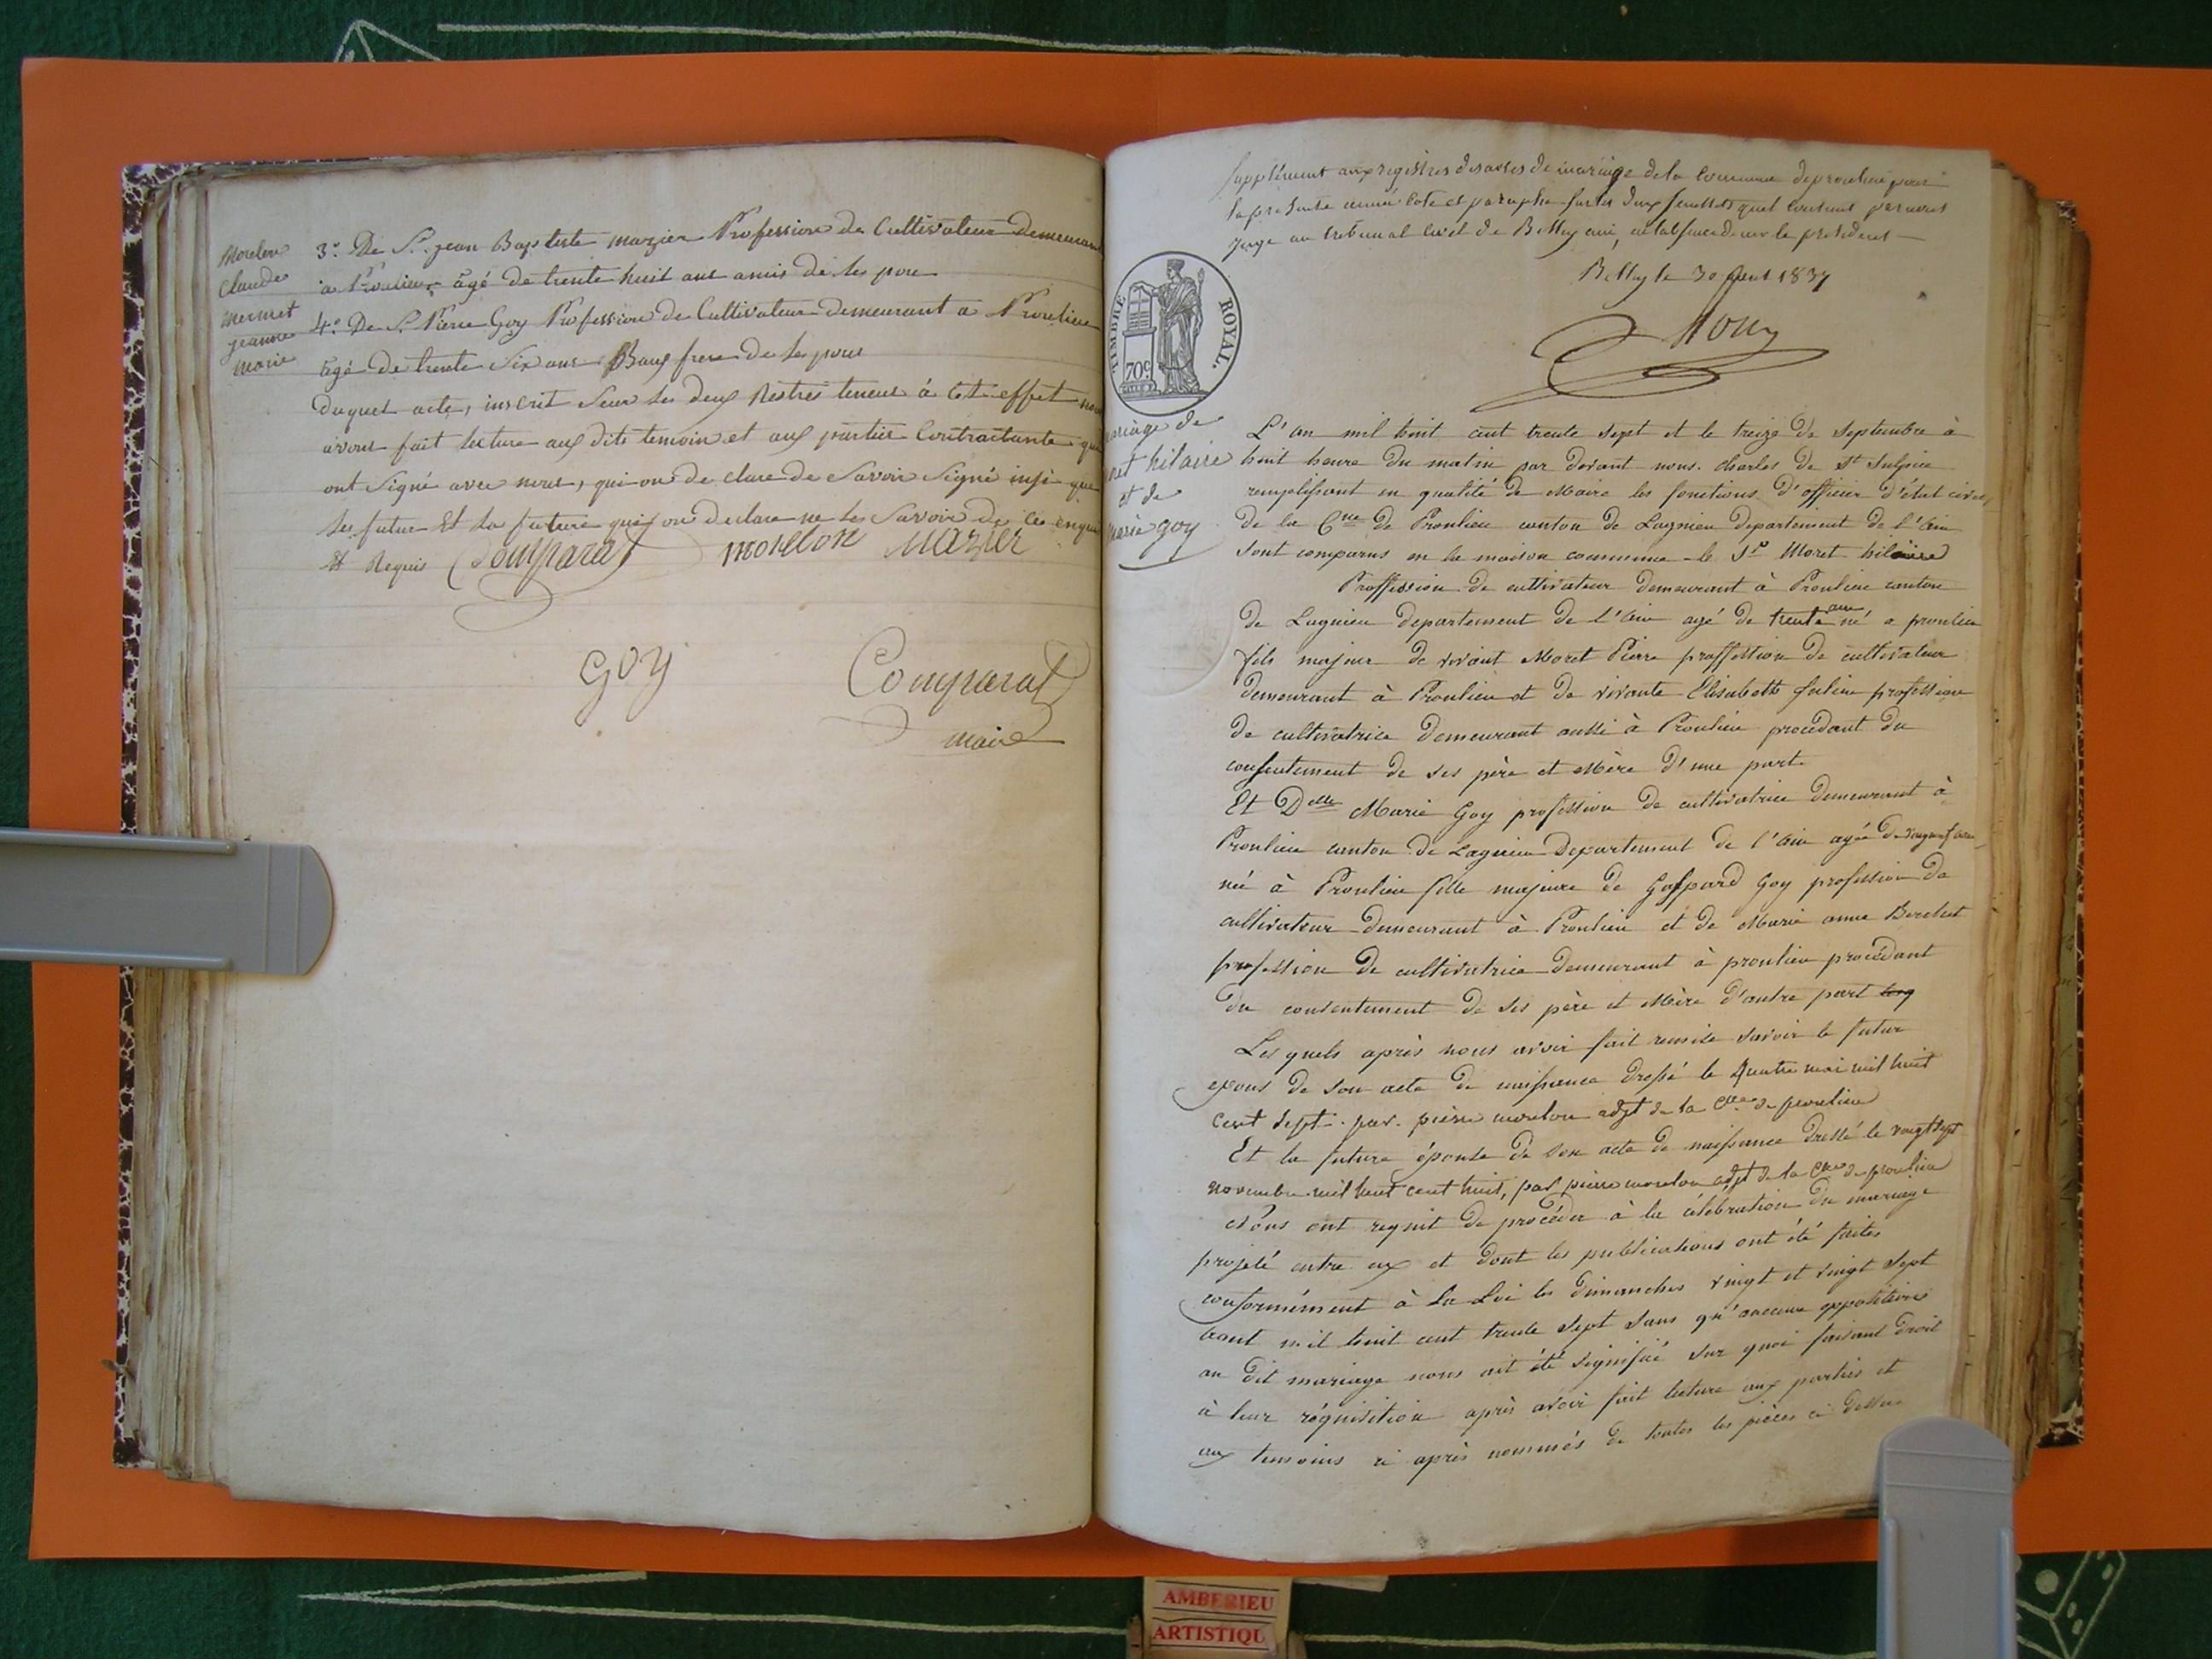 Morelon
Claude
mermet
jeanne
marie
3.° De S.r jean Baptiste mazier Profession de Cultivateur demeurant
a Proulieu, âgé de trente huit ans amis de les poux
4.° De S.r Pierre Goy Profession de Cultivateur demeurant a Proulieu
âgé de trente Six ans Baux frere de les poux
Duquel acte, inscrit Seur les deux Restres teneus à cet effet nous
avons fait lecture aux dits temoin et aux parties Contractante qui
ont Signé avec nous, qui on de clare de Savoir Signé insi que
les futur Et la future qui on declare ne les Savoir de ce enquis
& Requis Comparat morelon Mazier
Goy Comparat
maire
Supplément aux registres des actes de mariage de la Commune de proulieu pour
la présente année coté et paraphé sur les deux feuillets quil contient par nous
juge au tribunal civil de Belley ain, en l'absence de mr le président
Belley le 30 août 1837
TIMBRE ROYAL.
70c
mariage de
moret hilaire
et de
marie goy
L'an mil huit cent trente sept et le treize de septembre à
huit heure du matin par devant nous Charles de St Sulpice
remplissant en qualité de Maire les fonctions d'officier d'état civil
de la Cne de Proulieu canton de Lagnieu Departement de l'Ain
sont comparus en la maison commune le Sr Moret hilaire
Proffession de cultivateur demeurant à Proulieu canton
de Lagnieu departement de l'Ain agé de trente ans né a proulieu
fils majeur de vivant Moret Pierre proffession de cultivateur
demeurant à Proulieu et de vivante Elisabeth Juline profession
de cultivatrice demeurant aussi à Proulieu procedant du
consentement de ses père et Mère d'une part.
Et Delle Marie Goy profession de cultivatrice demeurant à
Proulieu canton de Lagnieu Departement de l'Ain agée de vingneuf ans
née à Proulieu fille majeure de Gaspard Goy profession de
cultivateur demeurant à Proulieu et de Marie anne Berchet
profession de cultivatrice demeurant à proulieu procédant
du consentement de ses père et Mère d'autre part
Les quels après nous avoir fait remise savoir le futur
epous de son acte de naissance dressé le Quatre mai mil huit
cent sept. par. pièrre morelon adjt de la Cne de proulieu
Et la future épouse de son acte de naissance dressé le vingt sept
novembre mil huit cent huit, par pierre morelon adjt de la Cne de proulieu
Nous ont requit de procéder à la célébration du mariage
projeté entre eux et dont les publications ont été faites
conformément à la Loi les Dimanches vingt et vingt sept
aout mil huit cent trente sept sans qu'aucune opposition
au dit mariage nous ait été signifié sur quoi faisant droit
à leur réquisition après avoir fait lecture aux parties et
aux temoins ci après nommés de toutes les pièces ci dessus
AMBERIEU
ARTISTIQU